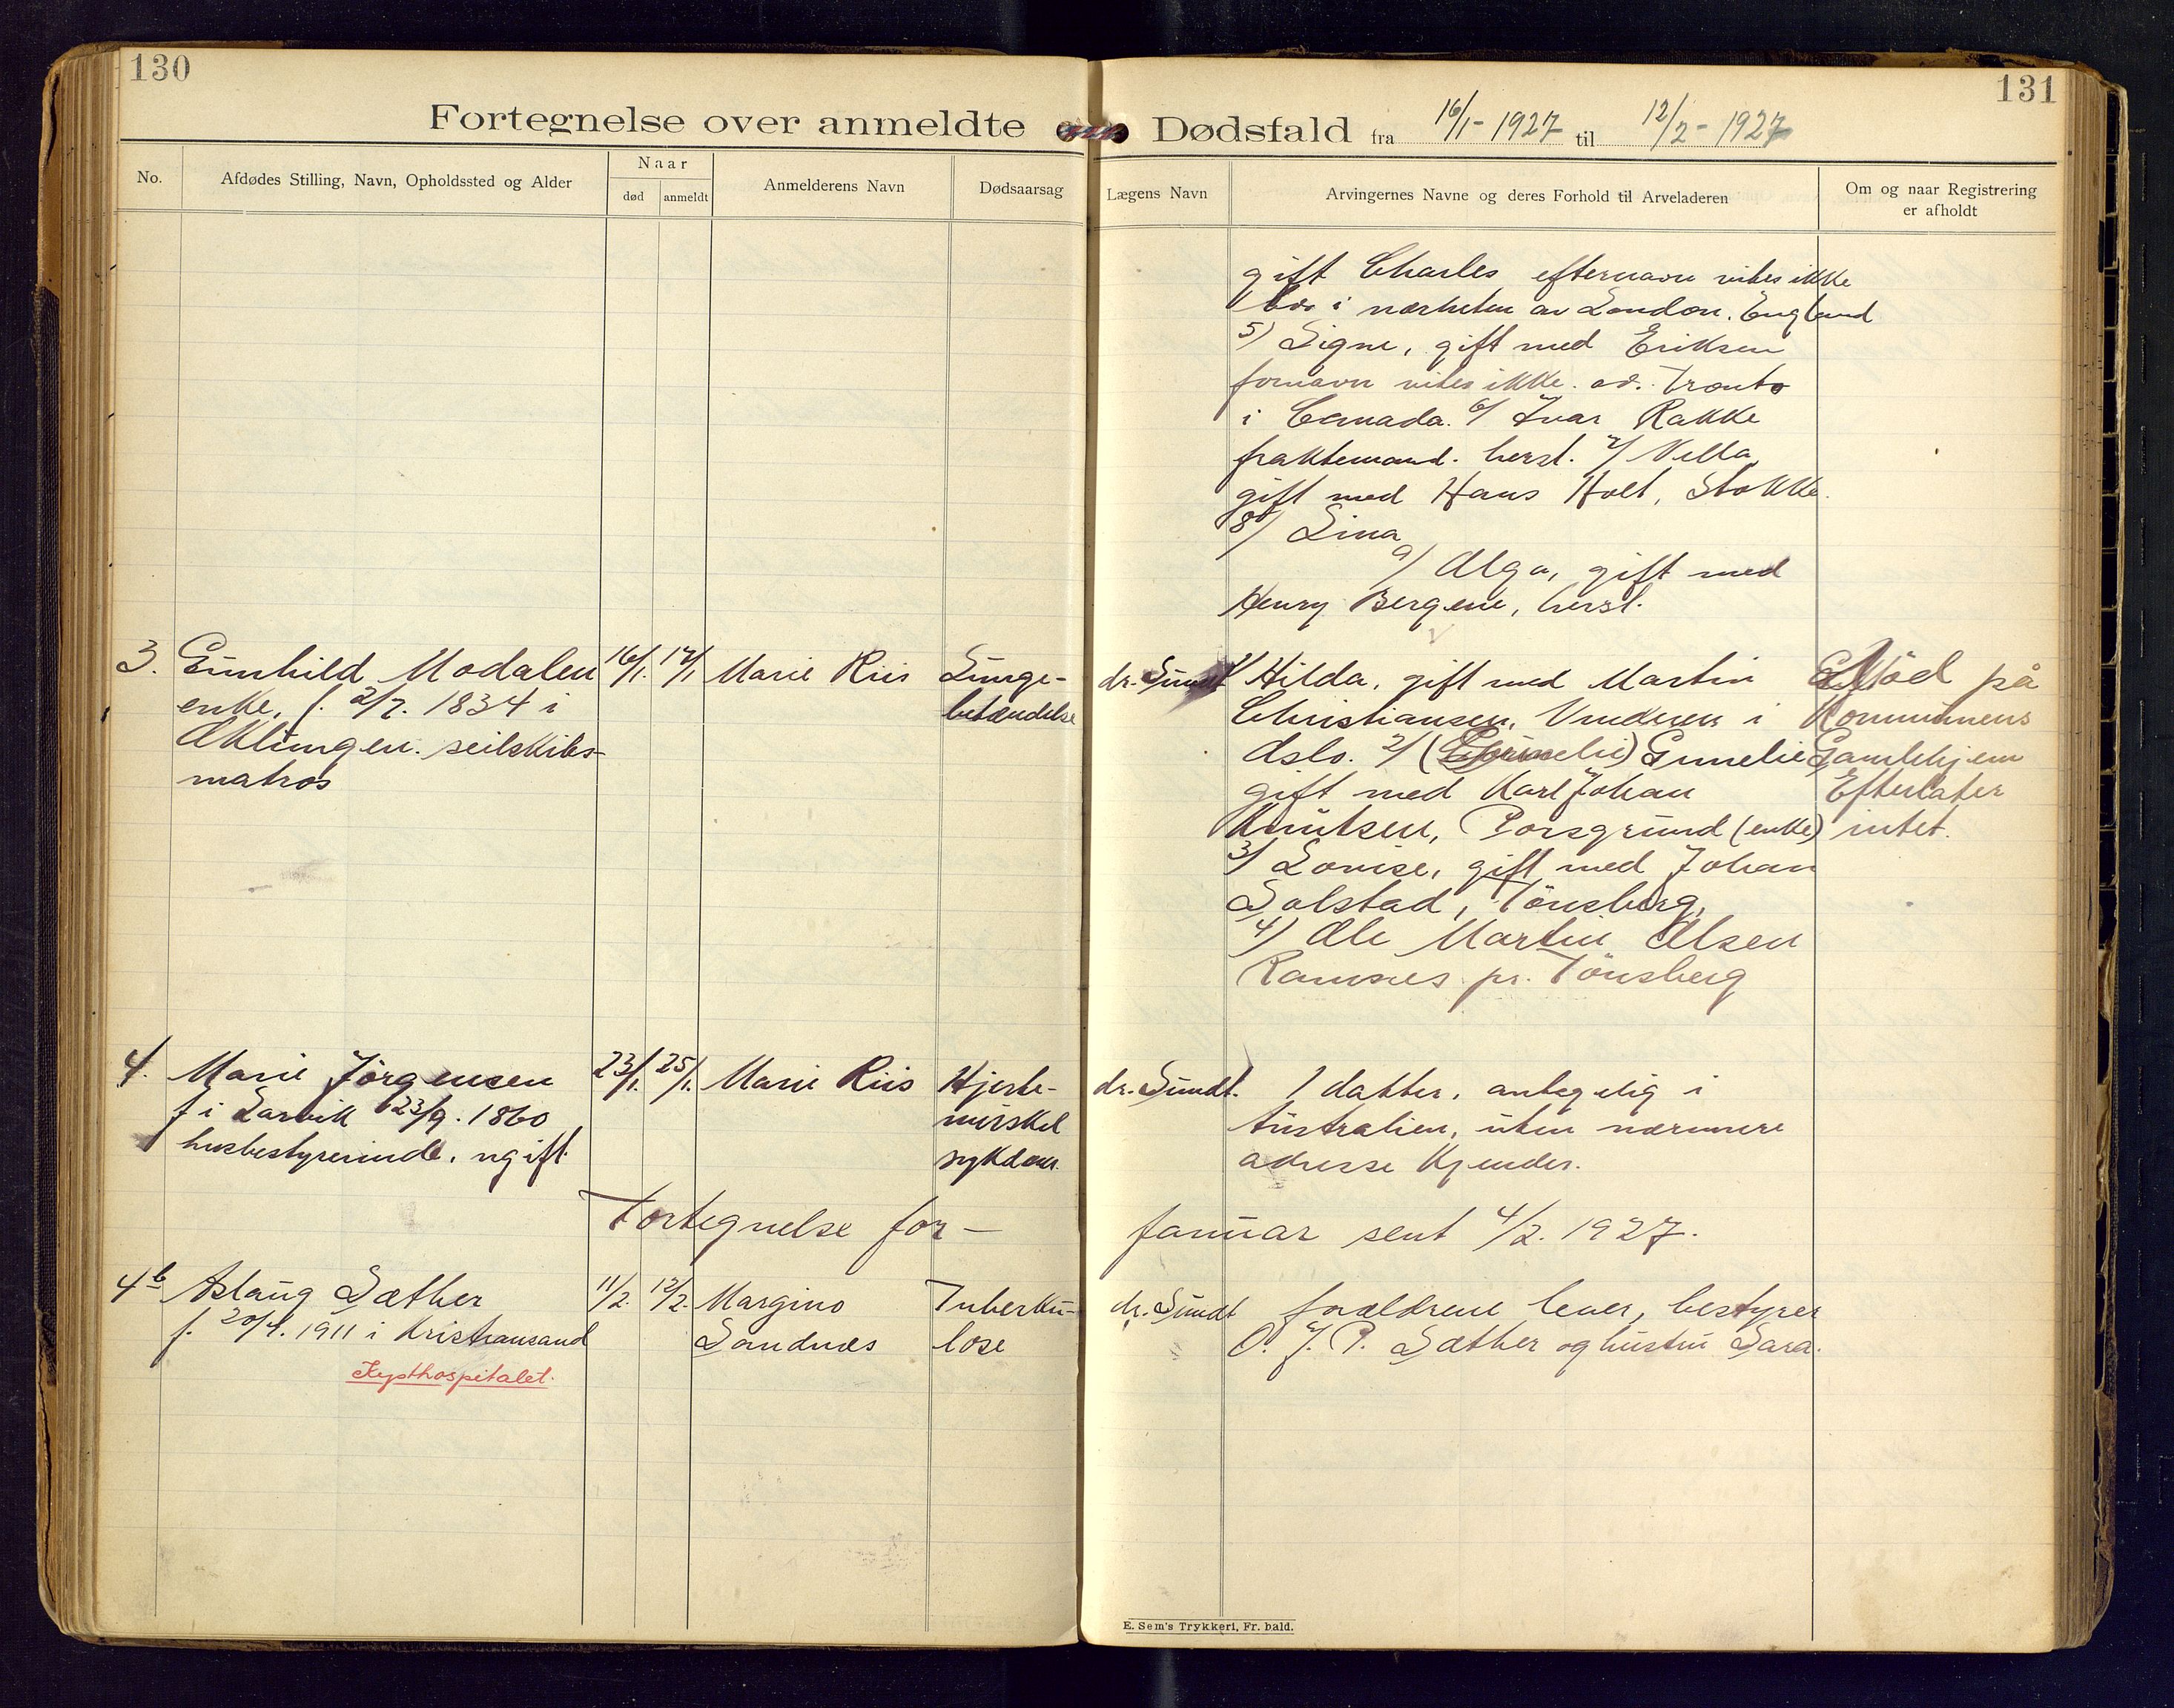 130
131
Fortegnelse over anmeldte Dødsfald fra 16/1 - 1927 til 12/2 - 1927
No.
Afdødes Stilling, Navn, Opholdssted og Alder
Naar
død
anmeldt
Anmelderens Navn
Dødsaarsag
Lægens Navn
Arvingernes Navne og deres Forhold til Arveladeren
Om og naar Registrering
er afholdt
gift Charles efternavn vites ikke
bor i nærheten av London. England
5/ Signe, gift med Eriksen
fornavn vites ikke. ad. Tronto
i Canada. 6/ Ivar Rakke
fraktemand. herst. 7/ Nella
gift med Hans Holt, Stokke.
8/ Lina
9/ Olga, gift med
Henry Bergene, herst.
3. Gunhild Modalen
enke, f. 2/7. 1834 i
Eklungen. seilskibs-
matros
16/1. 17/1
Marie Riis
Lunge-
betændelse
dr. Sundt
1/ Hilda, gift med Martin
Christiansen, Vinderen i
Oslo. 2/ Gunelie
gift med Karl Johan
Knutsen, Porsgrund (enke)
3/ Lovise, gift med Johan
Solstad, Tönsberg,
4) Ole Martin Olsen
Ramnes pr. Tönsberg
död på
Kommunens
Gamlehjem
Efterlater
intet.
4. Marie Jörgensen
f i Larvik 23/9. 1860
husbestyrerinde. ugift.
23/1. 25/1.
Marie Riis
Hjerte-
muskel
sykdom.
dr. Sundt.
1 datter, antagelig i
Australien, uten nærmere
adresse kjendes.
Fortegnelse for – januar sent 4/2. 1927.
4b Aslaug Sæther
f. 20/4. 1911 i Kristiansand
Kysthospitalet.
11/2. 12/2.
Margino
Sandnes
Tuberku-
lose
dr. Sundt
forældrene lever, bestyrer
O. J. P. Sæther og hustru Sara.
E. Sem's Trykkeri, Fr. hald.